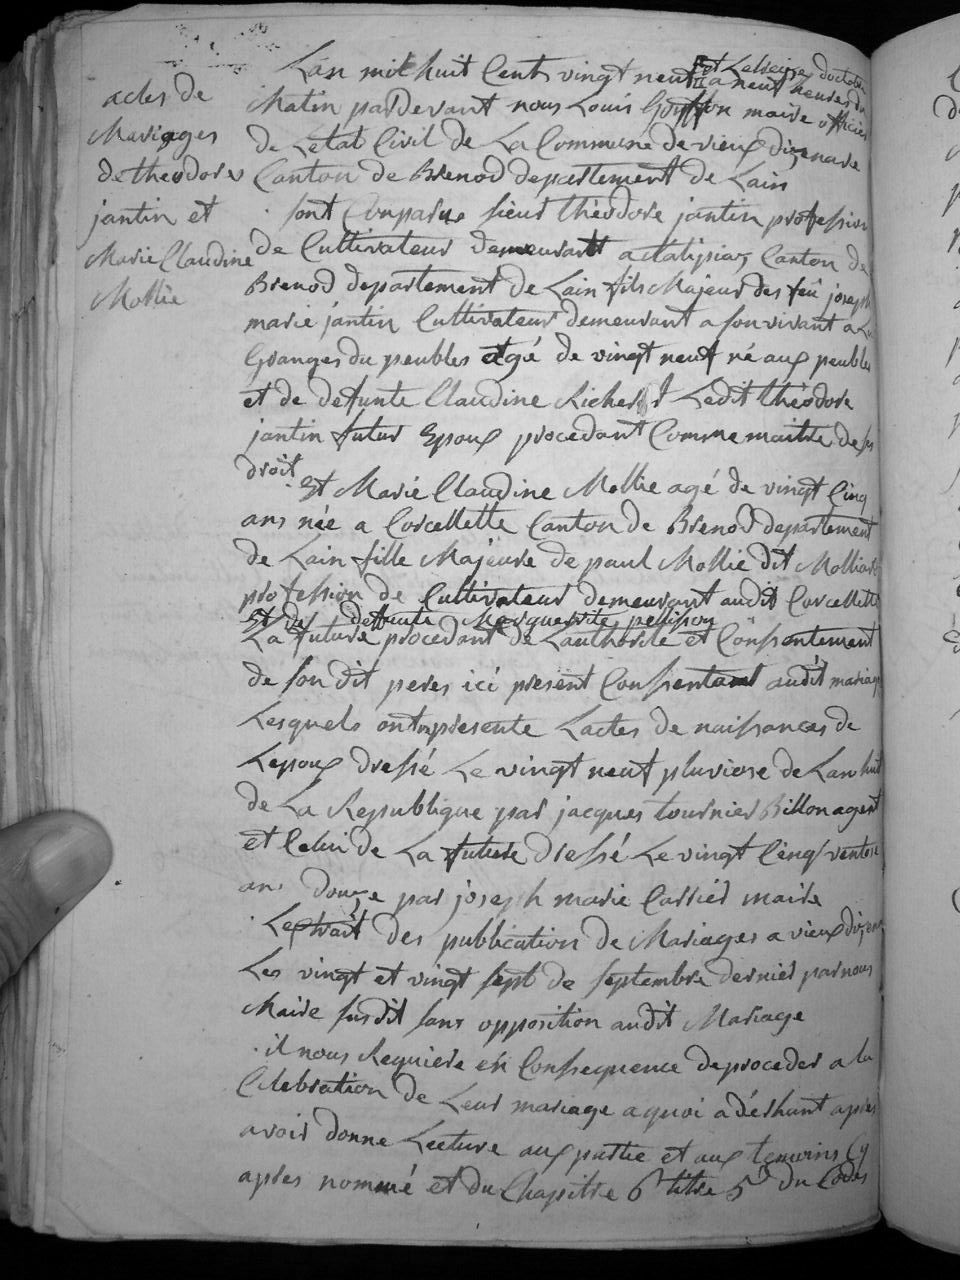 actes de
Mariages
de theodore
jantin et
Marie Claudine
Mollie
Lan mil huit Cent vingt neuf et Le seize doctobre
a neuf heures du
Matin pardevant nous Louis maire officier
de Letat Civil de La Commune de vieux dizenave
Canton de Brenod departement de Lain
sont Comparus sieur théodore jantin profession
de Cultivateur demeurant a Canton de
Brenod departement de Lain fils Majeur des feu joseph
marie jantin Cultivateur demeurant a son vivant a La
Granges du peubles agé de vingt neuf né aux peubles
et de defunte Claudine Richerot Ledit théodore
jantin futur Epoux procedant Comme maitre de ses
droit.
Et Marie Claudine Mollie agé de vingt Cinq
ans née a Corcellette Canton de Brenod departement
de Lain fille Majeure de paul Mollie dit Molliard
profession de Cultivateur demeurant audit Corcellette
Et de deffunte Marguerite pellisson
La future procedant de Lauthorité et Consentement
de son dit peres ici present Consentant audit mariage
Lesquels ont representé Lactes de naissances de
Lepoux dressé Le vingt neuf pluviose de Lan huit
de La Republique par jacques tournier Billon agent
et Celui de La future dressé Le vingt Cinq ventose
an douze par joseph marie Carrier maire
Lextrait des publication de Mariages a vieux dizenave
Les vingt et vingt sept de septembre dernier par nous
Maire susdit sans opposition audit Mariage
il nous Requiere en Consequence de proceder a la
Celebration de Leur mariage a quoi adérhant apres
avoir donne Lecture aux partie et aux temoins Cy
apres nommé et du Chapitre 6 titre 5 du Codes